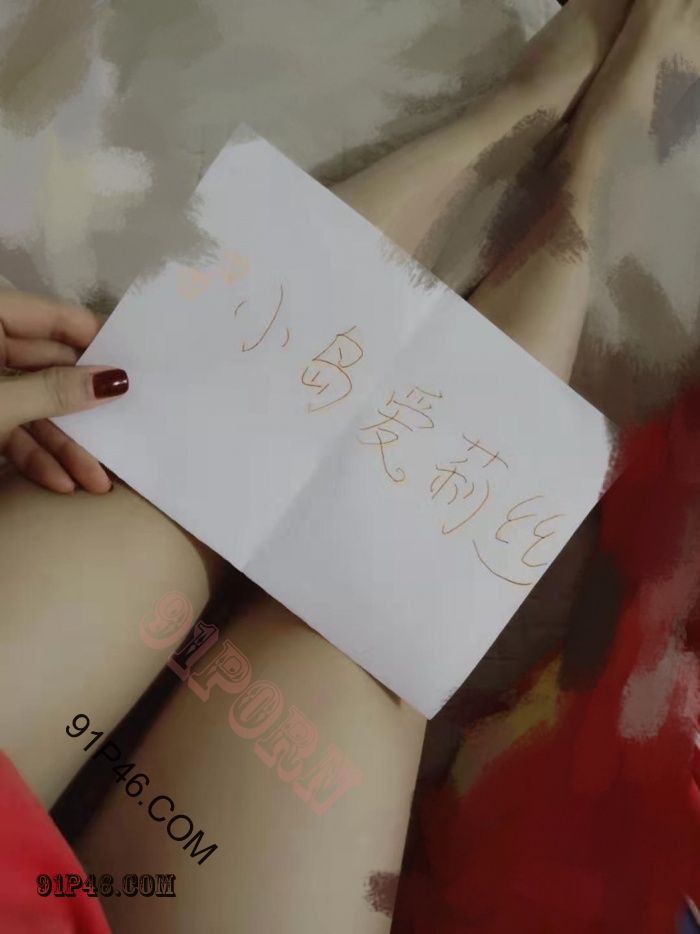 小岛爱莉丝
91PORN
91P46.COM
91P46.COM